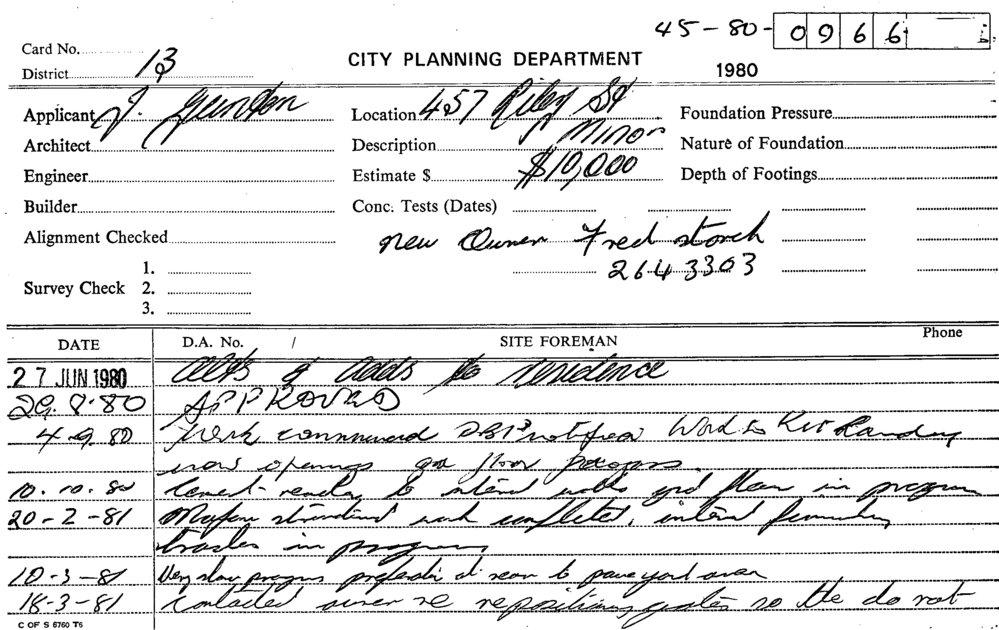 45-80-0966
Card No.
District 13
CITY PLANNING DEPARTMENT
1980
Applicant J.
Location 457 Riley St
Foundation Pressure
Architect
Description Minor
Nature of Foundation
Engineer
Estimate $ $10,000
Depth of Footings
Builder
Conc. Tests (Dates)
Alignment Checked
new Owner Fred Storch
264 3303
Survey Check
1.
2.
3.
DATE
D.A. No. /
SITE FOREMAN
Phone
27 JUN 1980
Alts & adds to residence
29.8.80 APPROVED
4-9.80 Work commenced notified
new openings floor progress.
10.10.80 Cement render to internal walls grd floor in progress
20-2-81 Major structural work completed, internal
trades in progress
10-3-81 Very slow progress rear to pave yard area
18-3-81 Contacted owner re repositioning gates so the do not
C OF S 6760 T6